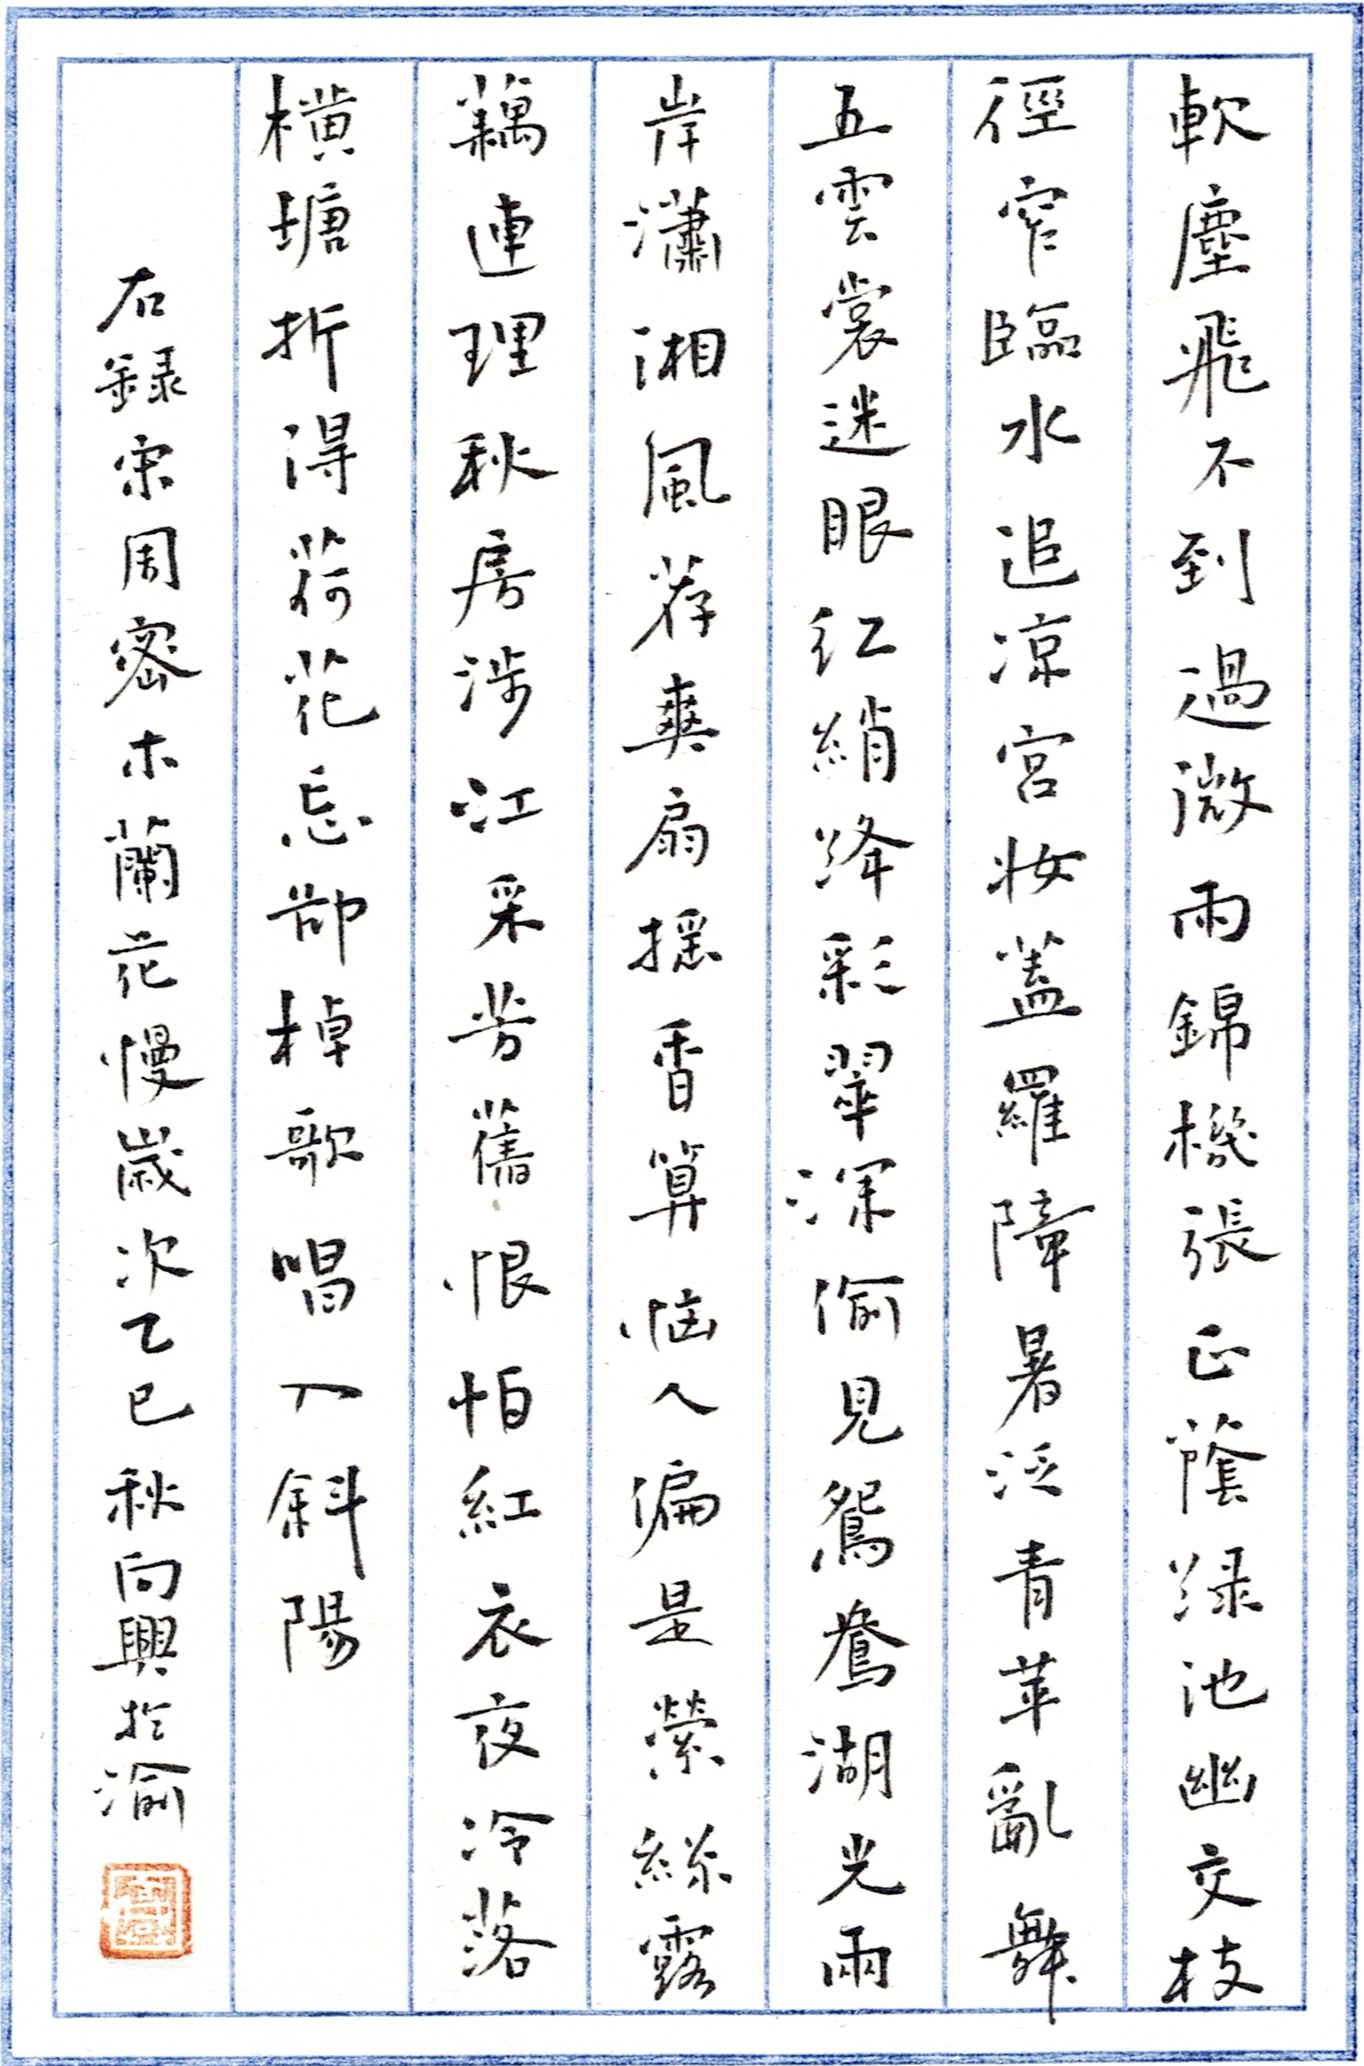 軟塵飛不到過微雨錦機張正蔭綠池幽交枝
徑窄臨水追凉宮妝蓋羅障暑泛青苹亂舞
五雲裳迷眼紅綃絳彩翠深偷見鴛鴦湖光兩
岸瀟湘風荐爽扇搖香算惱人偏是縈絲露
藕連理秋房涉江采芳舊恨怕紅衣夜冷落
橫塘折得荷花忘卻棹歌唱入斜陽
右録宋周密木蘭花慢歲次乙巳秋向興於渝